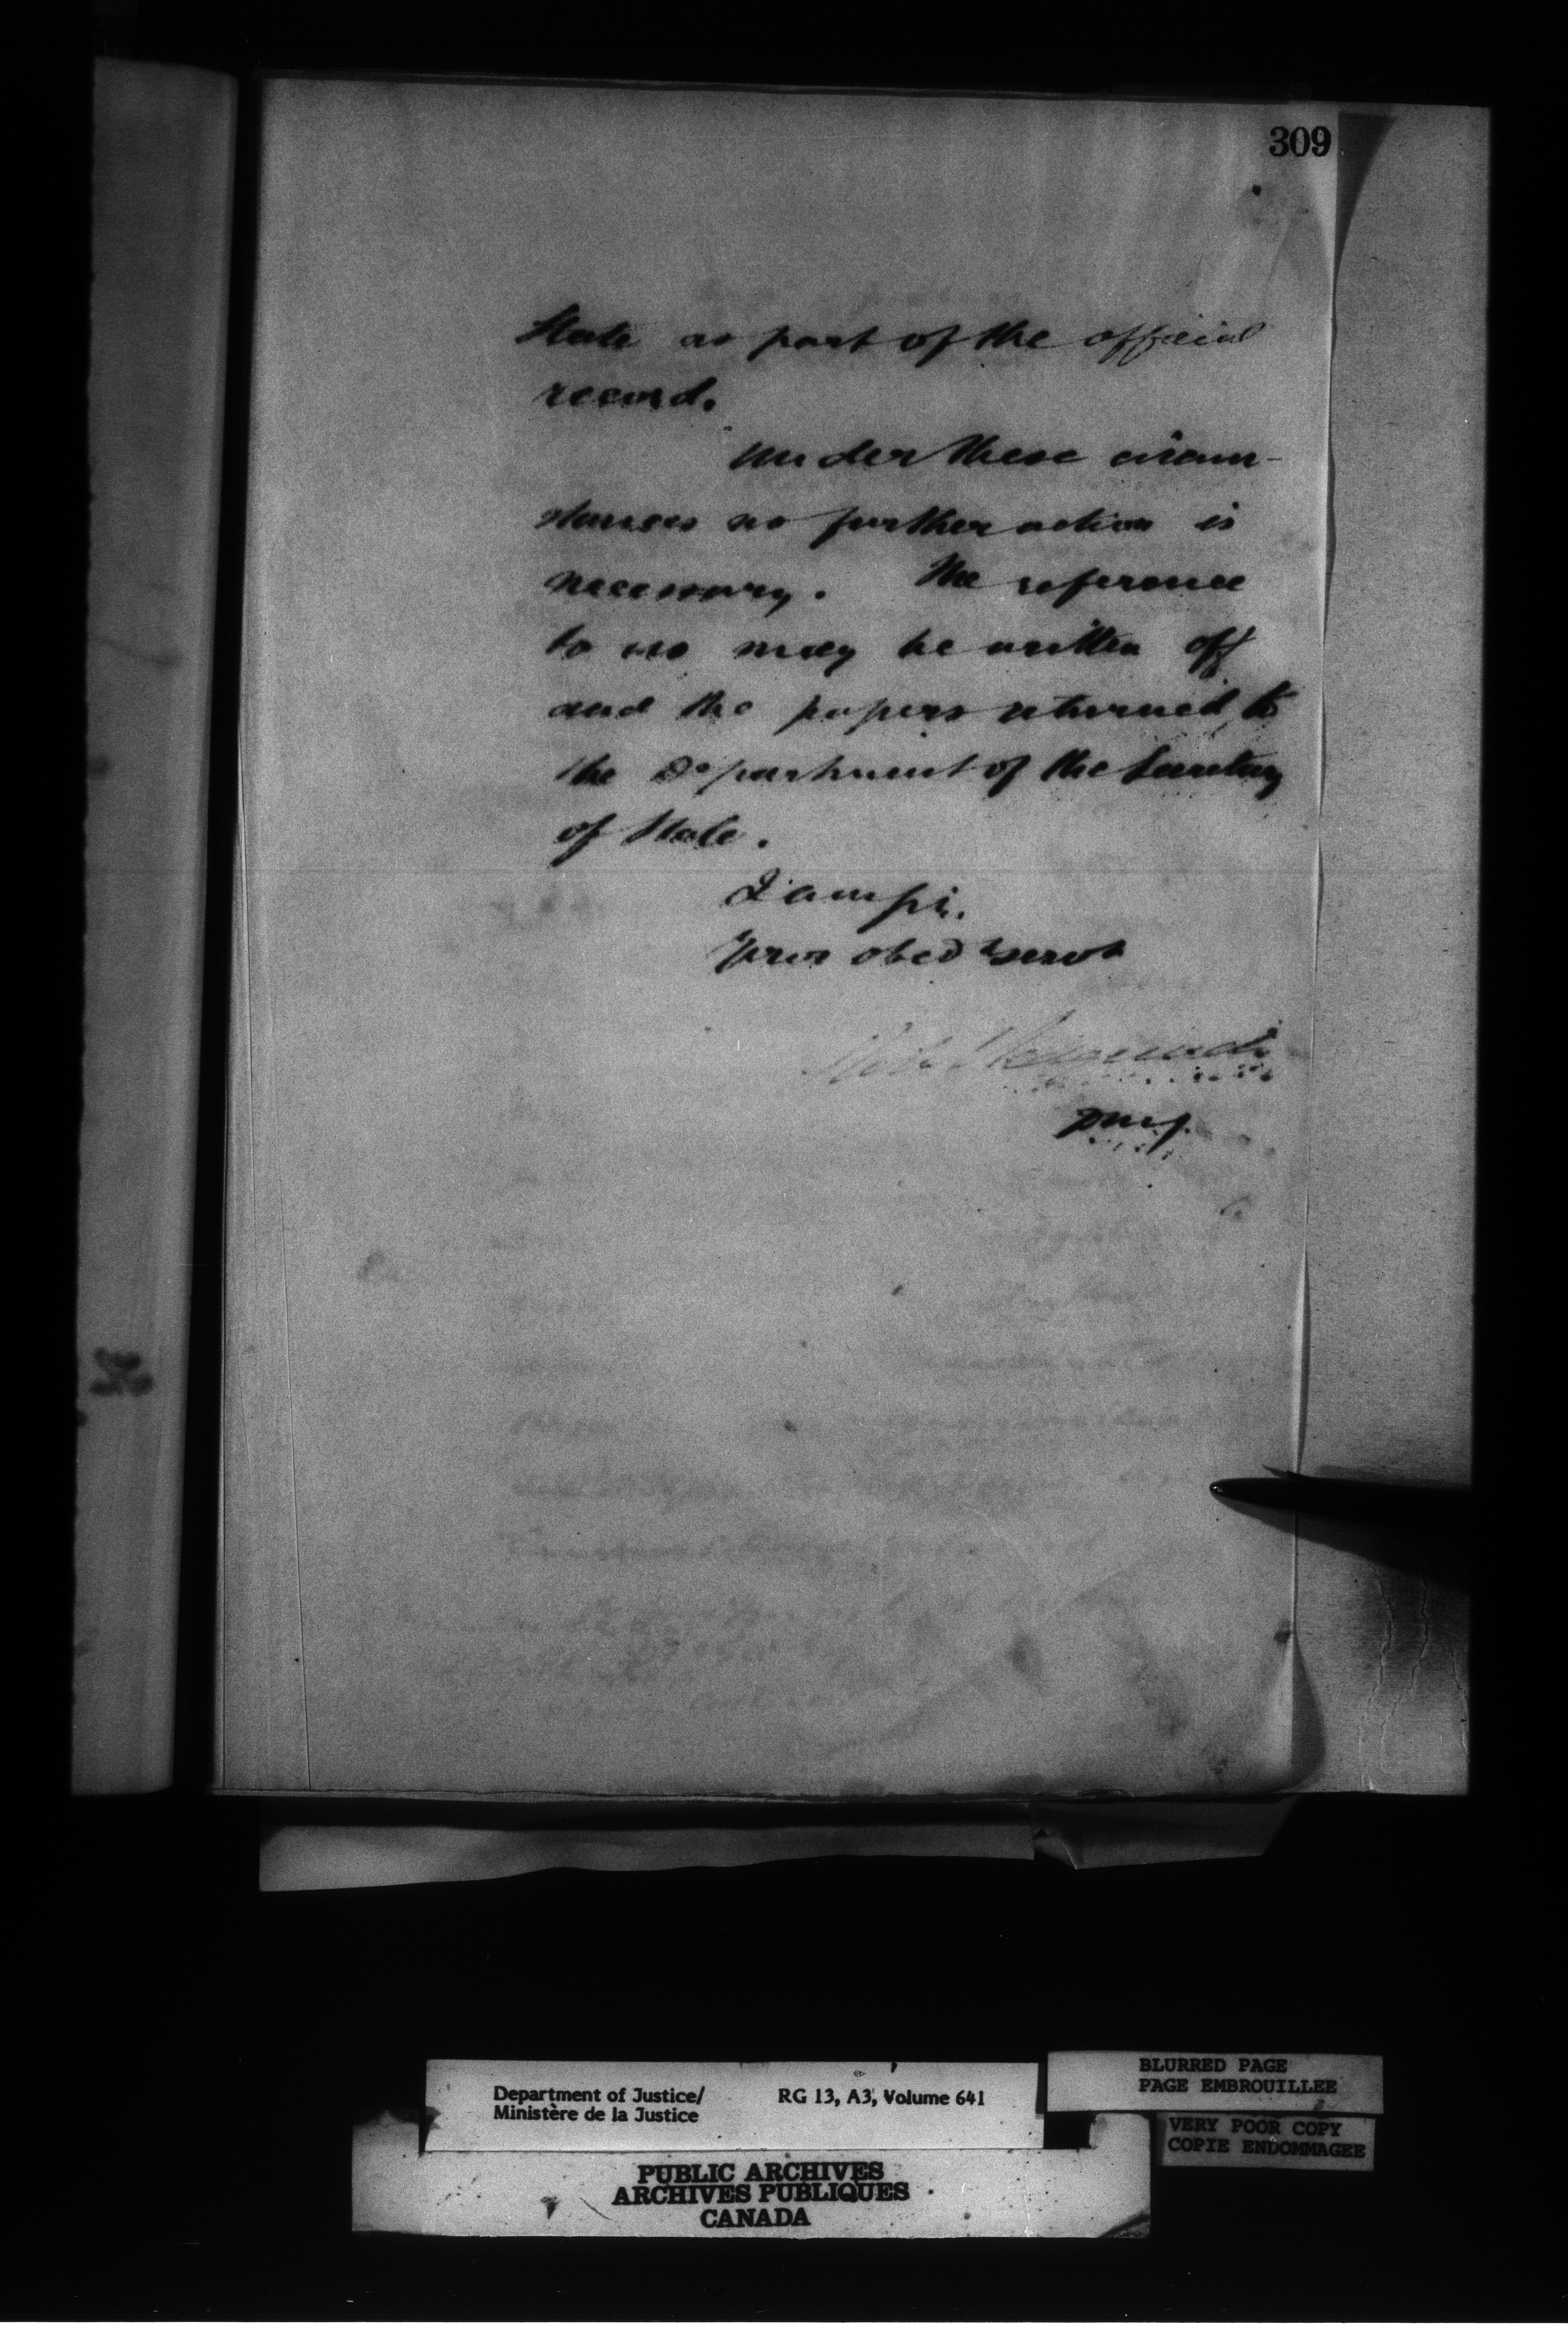 309
State as part of the official
record.
Under these circum-
stances no further action is
necessary. The reference
to us may be written off
and the papers returned to
the Department of the Secretary
of State.
I am Sir,
Your obedt servt
DMJ.
Department of Justice/
Ministère de la Justice
RG 13, A3, Volume 641
BLURRED PAGE
PAGE EMBROUILLEE
VERY POOR COPY
COPIE ENDOMMAGEE
PUBLIC ARCHIVES
ARCHIVES PUBLIQUES
CANADA